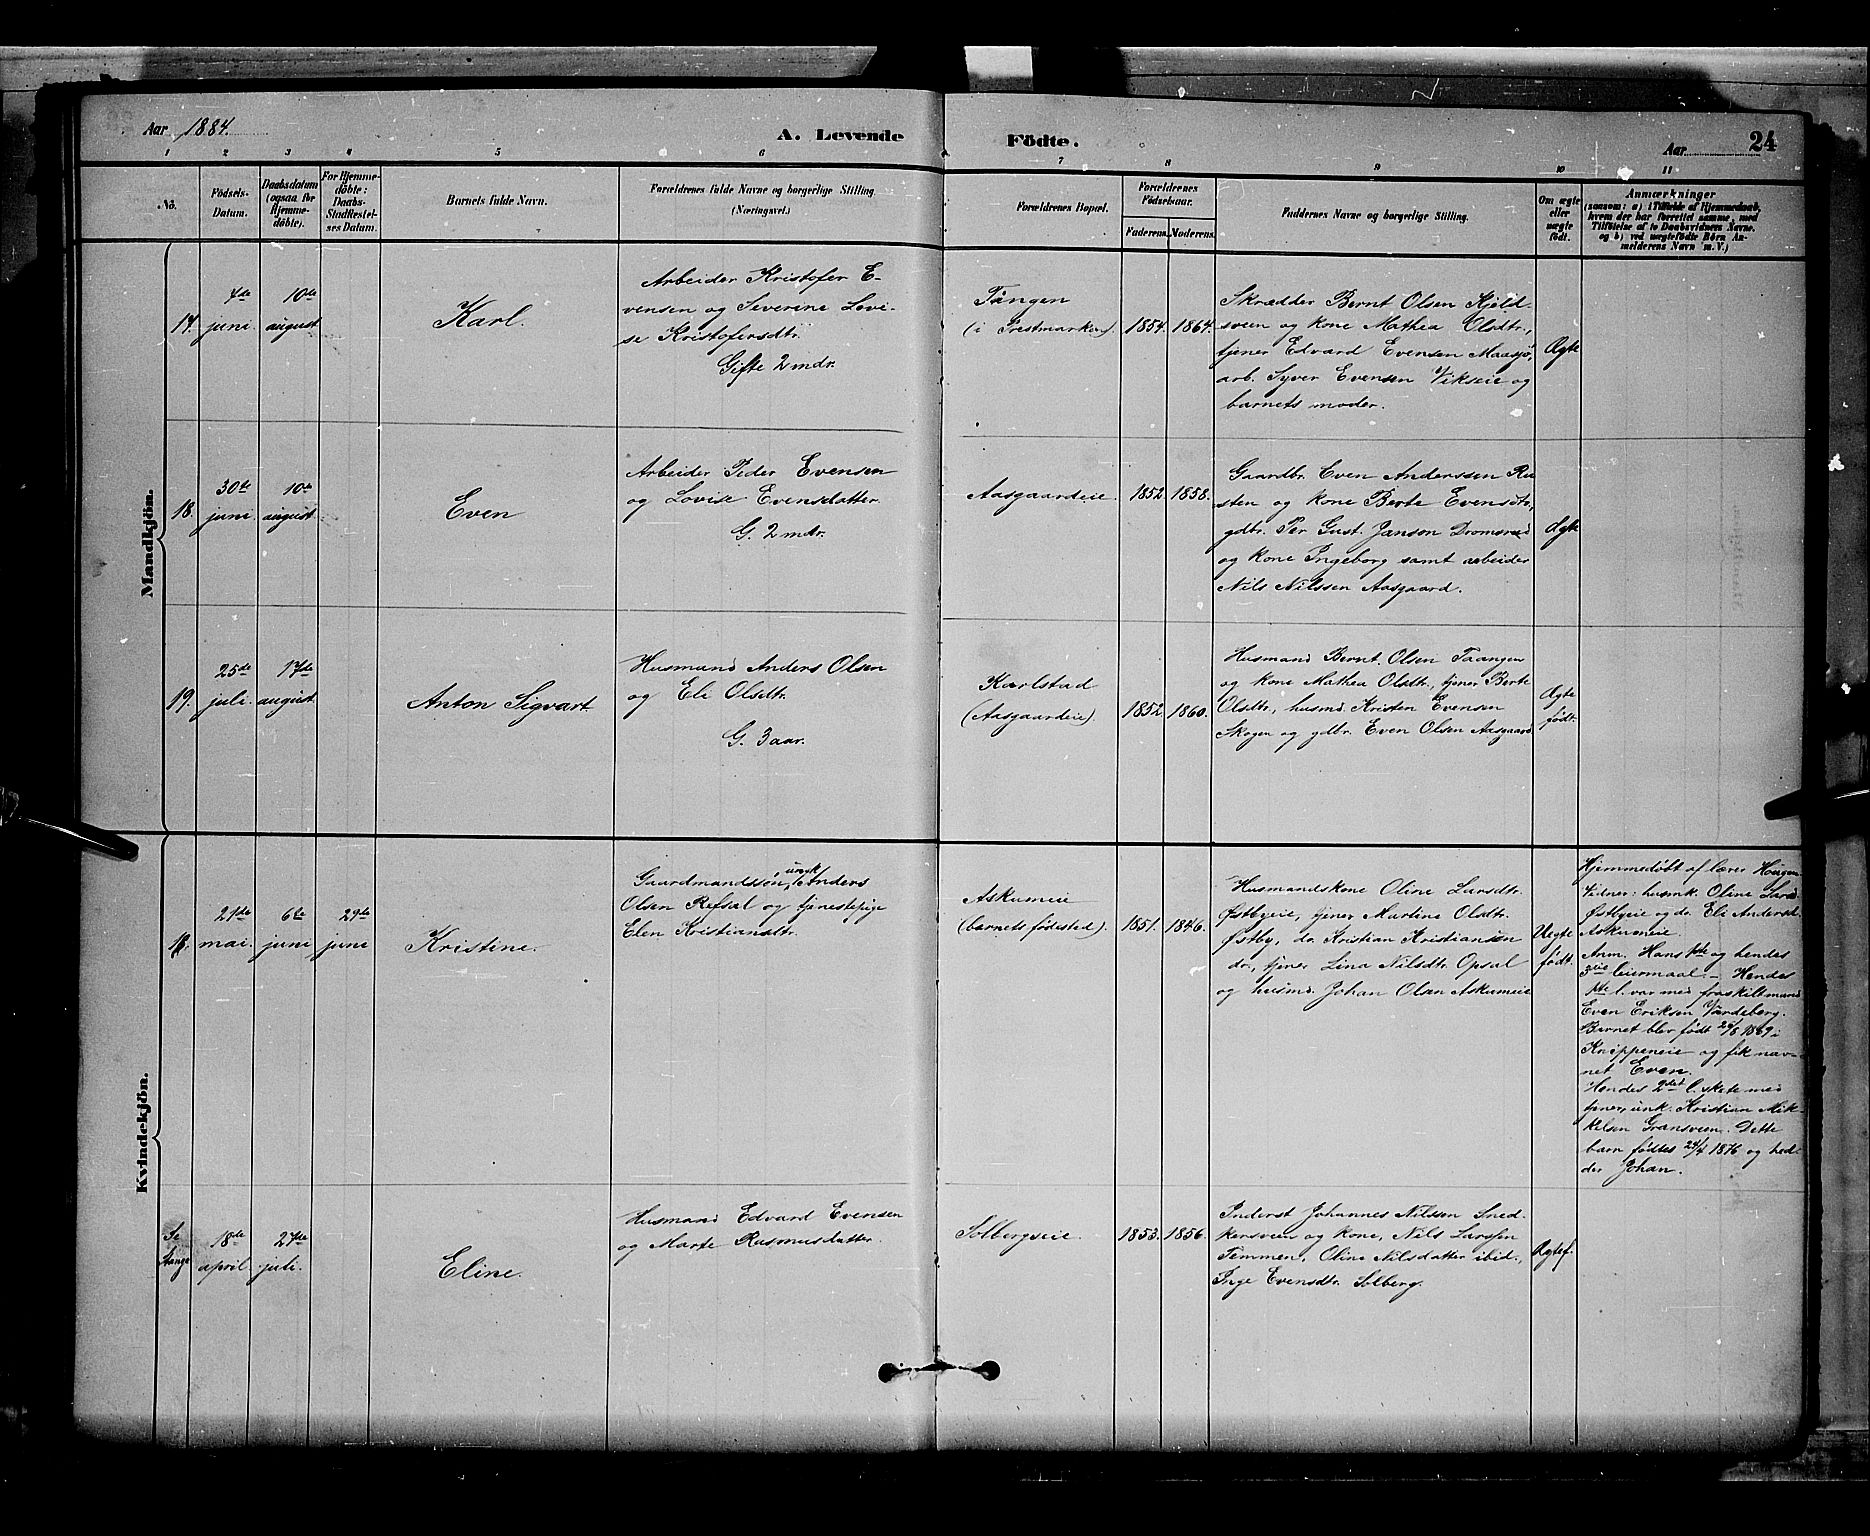 Aar 1884.
A. Levende
Födte.
Aar
24
1 2 3 4 5 6 7 8 9 10 11
No.
Födsels-
Datum.
Daabsdatum
(ogsaa for
Hjemme-
döbte).
For Hjemme-
döbte:
Daabs-
Stadfæstel-
ses Datum.
Barnets fulde Navn.
Forældrenes fulde Navne og borgerlige Stilling.
(Næringsvei.)
Forældrenes Bopæl.
Forældrenes
Födselsaar.
Faderens. Moderens.
Faddernes Navne og borgerlige Stilling.
Om ægte
eller
uægte
födt.
Anmærkninger
(saasom: a) i Tilfælde af Hjemmedaab,
hvem der har forrettet samme, med
Tilföielse af to Daabsvidners Navne,
og b) ved uægtefödte Börn An-
melderens Navn m. V.)
Mandkjön.
17.
7de
juni.
10de
august
Karl.
Arbeider Kristofer E-
vensen og Severine Lovi-
se Kristofersdtr.
Gifte 2 mdr.
Tången
(i Prestmarken)
1854. 1864.
Skrædder Bernt Olsen Kjeld-
sveen og kone Mathea Olsdtr.,
tjener Edvard Evensen Maasjø,
arb. Syver Evensen Vikseie og
barnets moder.
Ægte
18.
30te
juni.
10de
august.
Even
Arbeider Peder Evensen
og Lovise Evensdatter.
G. 2 mdr.
Aasgaardeie.
1852 1858.
Gaardbr. Even Anderssen Ru-
sten og kone Berte Evensdtr,
gdbr. Per Gust. Janson
og kone Ingeborg samt arbeider
Nils Nilssen Aasgaard.
Ægte
19.
25de
juli.
17de
august.
Anton Sigvart
Husmand Anders Olsen
og Eli Olsdtr.
G. 3 aar.
Karlstad
(Aasgaardeie).
1852 1860.
Husmand Bernt Olsen Taangen
og kone Mathea Olsdtr., tjener Berte
Olsdtr., husmd. Kristen Evensen
Skogen og gdbr. Even Olsen Aasgaard
Ægte
født.
Kvindekjön.
18.
21de
mai.
6te
juni
29de
juni
Kristine.
Gaardmandssøn, unck. Anders
Olsen Refsal og tjenestepige
Elen Kristiansdtr.
Askumeie
(barnets fødested).
1851. 1846.
Husmandskone Oline Larsdtr.
Østbyeie, tjener Martine Olsdtr.
Østby, do. Kristian Kristiansen
do., tjener Lina Nilsdtr. Opsal
og husmd. Johan Olsen Askumeie
Uegte
født.
Hjemmedøbt af lærer Haugen
Vidner: husmk. Oline Larsd.
Østbyeie og do. Eli Andersd.
Askumeie.
Anm. Hans 1ste og hendes
3die leiermaal. – Hendes
1ste l. var med fraskilt mand
Even Eriksen Vardeberg.
Barnet blev født 24/8 1869 i
Knippeneie og fik nav-
net Even.
Hendes 2det l. skete med
tjener, unk. Kristian Mik-
kelsen Gransveen. Dette
barn fødtes 24/4 1876 og hed-
der Johan.
Se
Stange
18de
april
27de
juli.
Eline.
Husmand Edvard Evensen
og Marte Rasmusdatter.
Solbergseie.
1853. 1856.
Inderst Johannes Nilsen Sned-
kersveen og kone, Nils Larsen
Temmen, Oline Nilsdatter ibid.,
Inge Evensdtr. Solberg.
Ægtef.